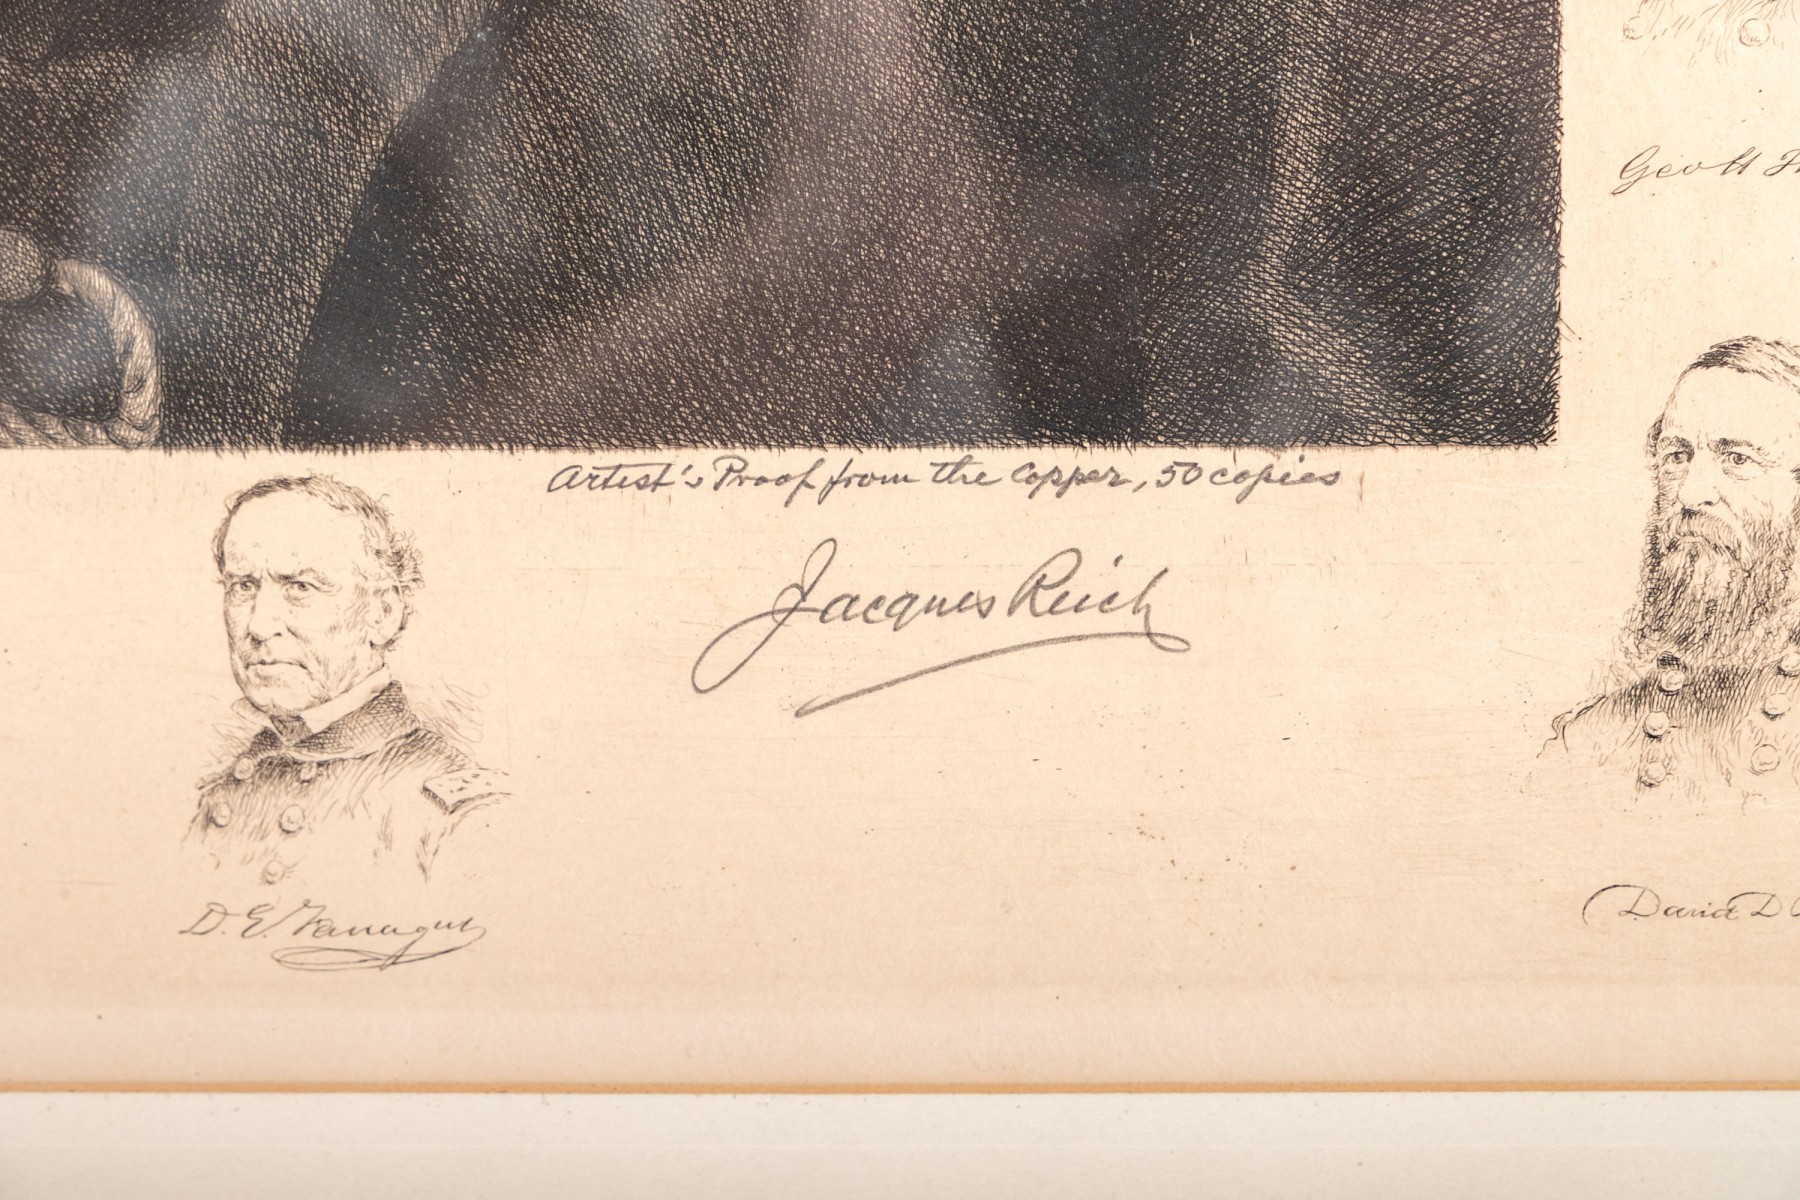 Geo H
Artist's Proof from the copper, 50 copies
Jacques Reich
D. G. Farragut
David D